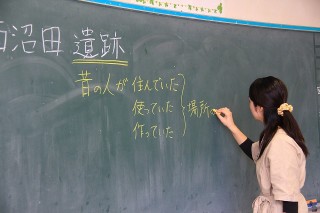 沼田 遺跡
昔の人が 住んでいた
使っていた 場所
作っていた